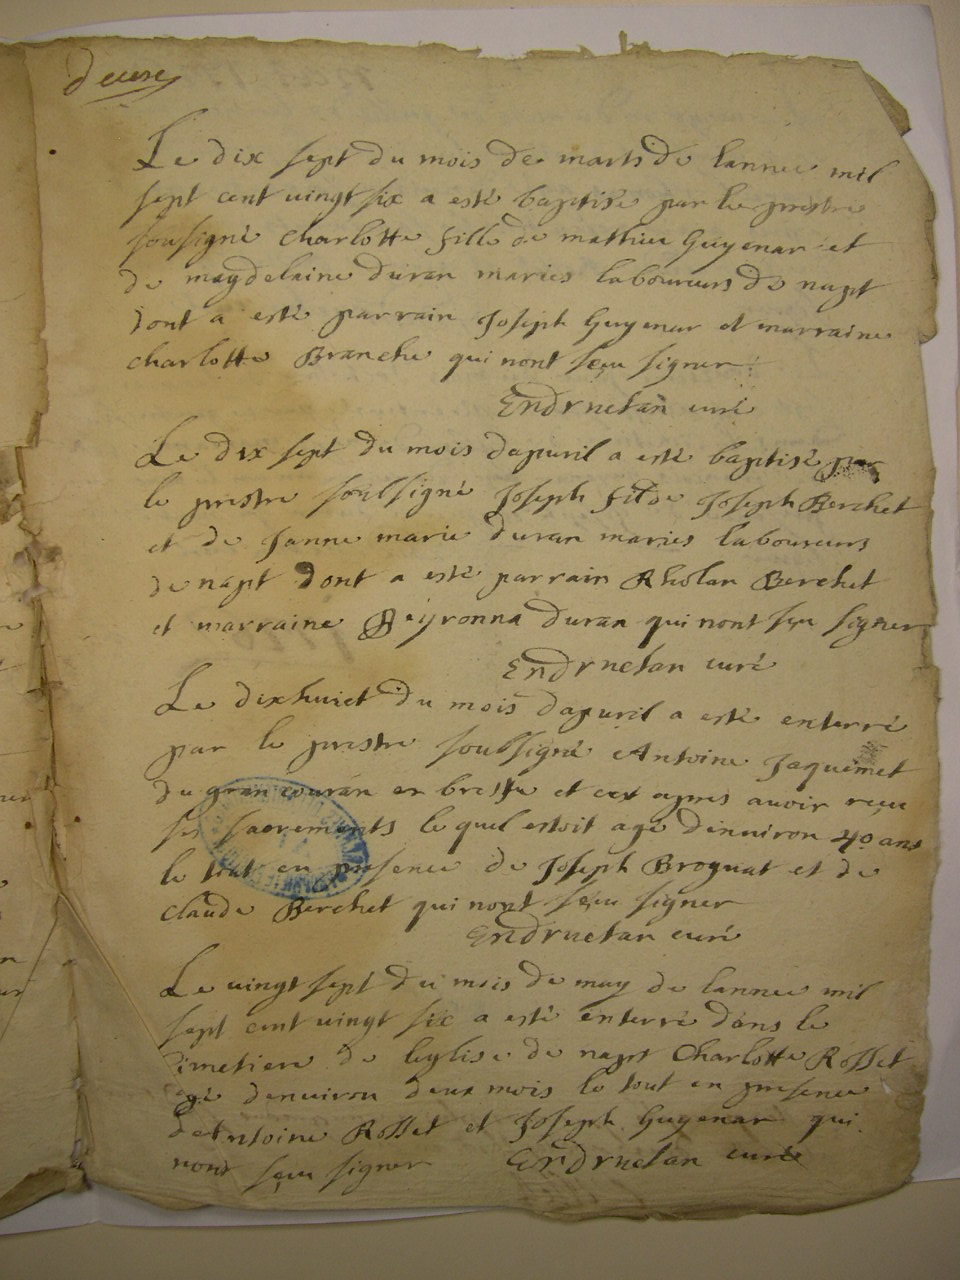 deuxe
Le dix sept du mois de marts de lannee mil
sept cent vingt six a esté baptisé par le prestre
sousigné charlotte fille de mathieu Guyenar et
de magdelaine duran maries laboureurs de napt
dont a esté parrain Joseph Guyenar et marraine
charlotte Branche qui nont sçeu signer
curé
Le dix sept du mois dapuril a esté baptisé par
le prestre soulsigné Joseph fils de Joseph Berchet
et de Janne marie duran maries laboureurs
de napt dont a esté parrain Rholan Berchet
et marraine Peyronna duran qui nont sçu signer
curé
Le dixhuict du mois dapuril a esté enterré
par le prestre soulsigné Antoine Jaquemet
du gran couran en bresse et cex apres auoir reçu
ses sacrements lequel estoit agé denuiron 40 ans
le tout en presence de Joseph Broquat et de
claude Berchet qui nont sçeu signer
curé
Le vingt sept du mois de may de lannee mil
sept cent vingt six a esté enterré dans le
cimetiere de leglise de napt Charlotte Rosset
agé denuiron deux mois le tout en presence
de Antoine Rosset et Joseph Guyenar qui
nont sçeu signer curé